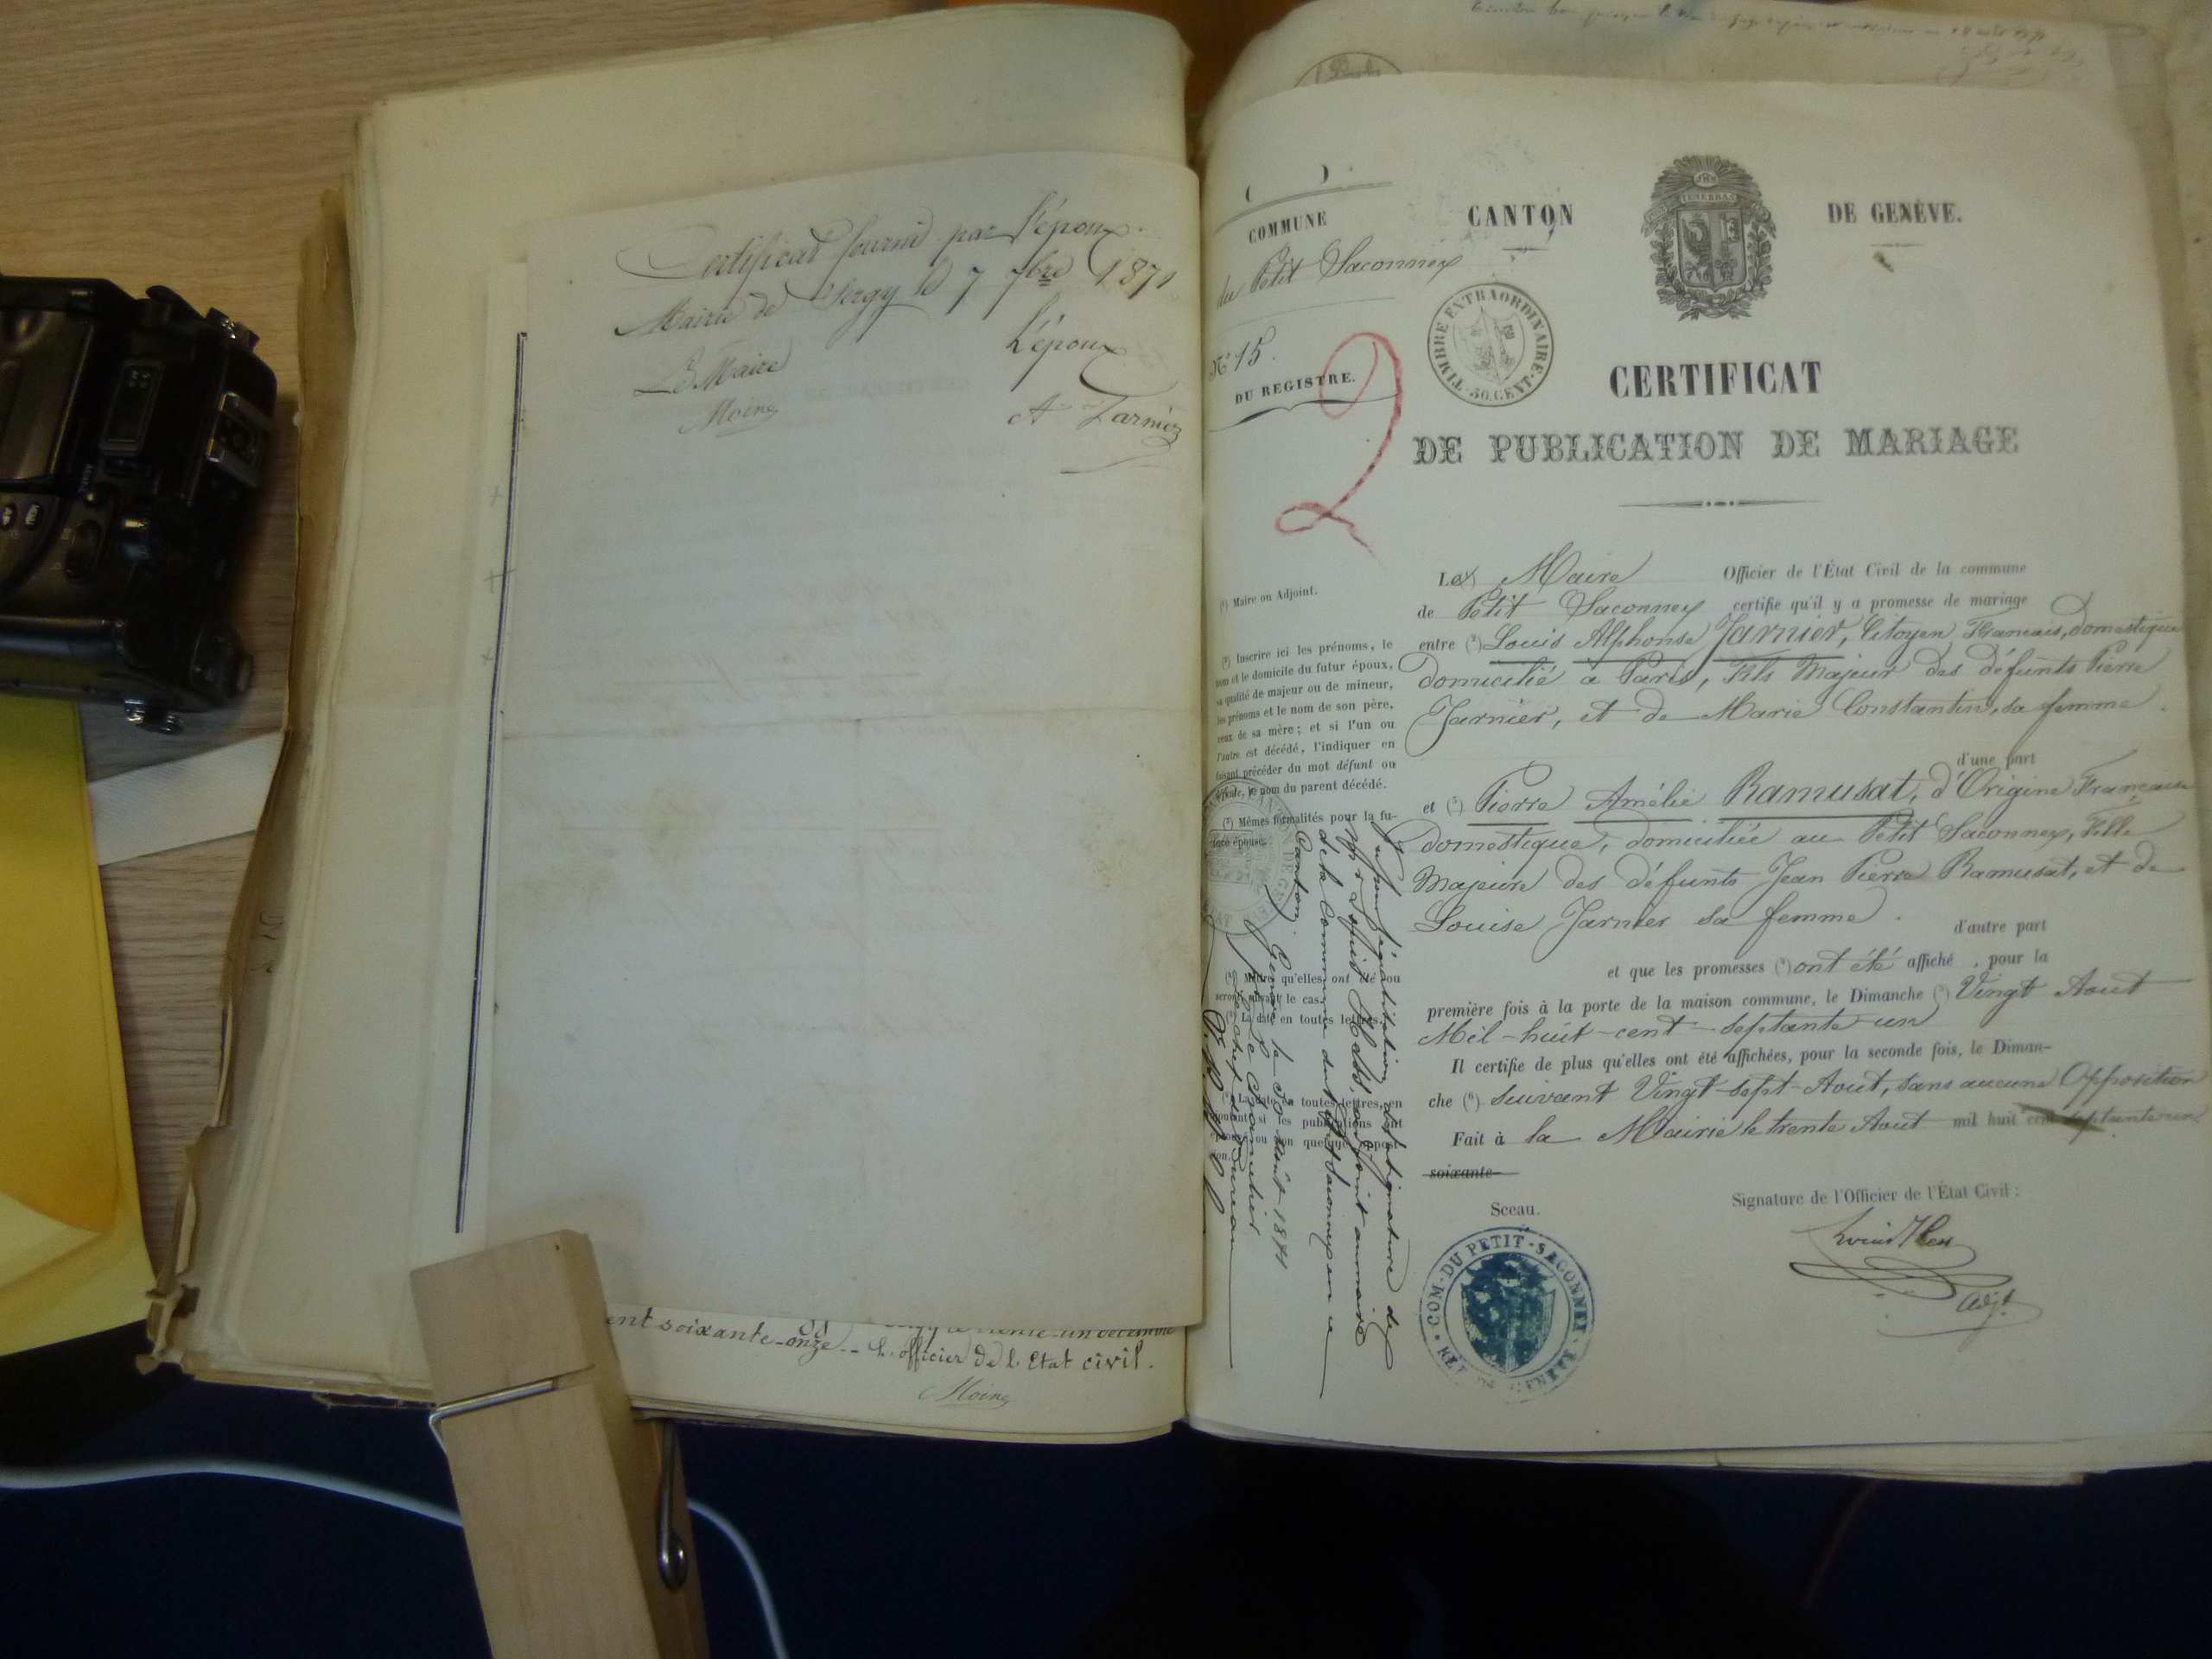 Certificat fournit par l'époux.
Mairie de Sergy le 7 7bre 1871
Le Maire
Moine
L'époux
A Jarnier
ent soixante-onze.- L'officier de l'Etat civil.
Moine
COMMUNE
du Petit Saconnex
N° 15.
DU REGISTRE.
2
CANTON DE GENÈVE.
TIMBRE EXTRAORDINAIRE · 50 CENT ·
CERTIFICAT
DE PUBLICATION DE MARIAGE
(¹) Maire ou Adjoint.
(²) Inscrire ici les prénoms, le
nom et le domicile du futur époux,
sa qualité de majeur ou de mineur,
les prénoms et le nom de son père,
ceux de sa mère; et si l'un ou
l'autre est décédé, l'indiquer en
faisant précéder du mot défunt ou
défunte, le nom du parent décédé.
(³) Mêmes formalités pour la fu-
ture épouse.
(⁴) Mettre qu'elles ont été ou
seront suivant le cas.
(⁵) La date en toutes lettres.
(⁶) La date en toutes lettres, en
Le Maire Officier de l'État Civil de la commune
de Petit Saconnex certifie qu'il y a promesse de mariage
entre (²) Louis Alphonse Jarnier, Citoyen Français, domestique
domicilié à Paris, Fils Majeur des défunts Pierre
Jarnier, et de Marie Constantin, sa femme.
d'une part
et (³) Pierre Amélie Ramusat, d'Origine Française
domestique, domiciliée au Petit Saconnex, Fille
Majeure des défunts Jean Pierre Ramusat, et de
Louise Jarnier sa femme.
d'autre part
et que les promesses (⁴) ont été affiché , pour la
première fois à la porte de la maison commune, le Dimanche (⁵) Vingt Aout
Mil-huit-cent-septante-un
Il certifie de plus qu'elles ont été affichées, pour la seconde fois, le Diman-
che (⁶) suivant Vingt-sept-Aout, sans aucune Opposition
Fait à la Mairie le trente Aout mil huit cent septante un
soixante
Sceau.
Signature de l'Officier de l'État Civil:
Louis Hess
Adjt
COM. DU PETIT-SACONNEX
Vu pour légalisation de la signature de
Mr Louis Hess, adjoint au maire
de la Commune du Petit Saconnex en ce
Canton. Genève le 30 Août 1871